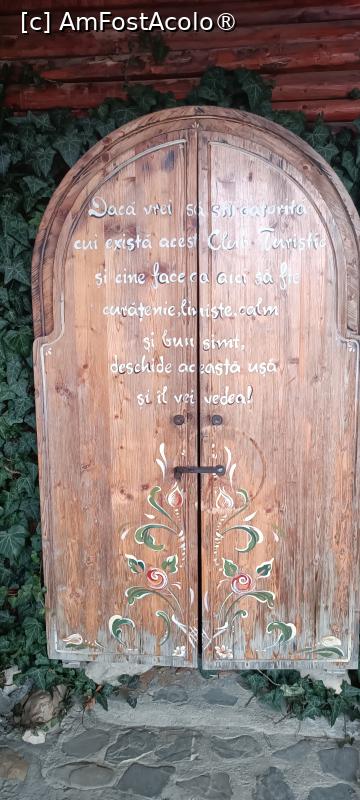 [c] AmFostAcolo®
Dacă vrei să știi datorită
cui există acest Club Turistic
și cine face ca aici să fie
curățenie, liniște, calm
și bun simț,
deschide această ușă
și îl vei vedea!